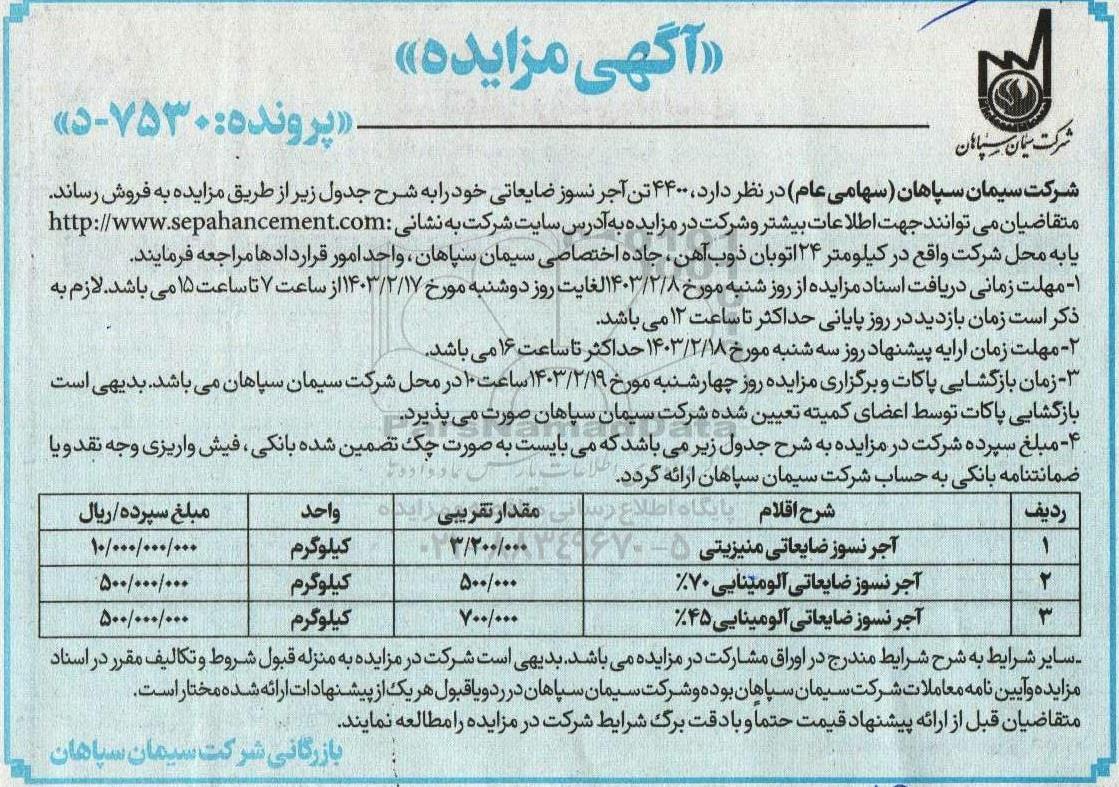 «آگهی مزایده»
شرکت سیمان سپاهان
«پرونده: ۷۵۳۰-د»
شرکت سیمان سپاهان (سهامی عام) در نظر دارد، ۴۴۰۰ تن آجر نسوز ضایعاتی خود را به شرح جدول زیر از طریق مزایده به فروش رساند.
متقاضیان می توانند جهت اطلاعات بیشتر و شرکت در مزایده به آدرس سایت شرکت به نشانی: http://www.sepahancement.com
یا به محل شرکت واقع در کیلومتر ۲۴ اتوبان ذوب آهن، جاده اختصاصی سیمان سپاهان، واحد امور قراردادها مراجعه فرمایند.
۱- مهلت زمانی دریافت اسناد مزایده از روز شنبه مورخ ۱۴۰۳/۲/۸ لغایت روز دوشنبه مورخ ۱۴۰۳/۲/۱۷ از ساعت ۷ تا ساعت ۱۵ می باشد. لازم به
ذکر است زمان بازدید در روز پایانی حداکثر تا ساعت ۱۲ می باشد.
۲- مهلت زمان ارایه پیشنهاد روز سه شنبه مورخ ۱۴۰۳/۲/۱۸ حداکثر تا ساعت ۱۶ می باشد.
۳- زمان بازگشایی پاکات و برگزاری مزایده روز چهارشنبه مورخ ۱۴۰۳/۲/۱۹ ساعت ۱۰ در محل شرکت سیمان سپاهان می باشد. بدیهی است
بازگشایی پاکات توسط اعضای کمیته تعیین شده شرکت سیمان سپاهان صورت می پذیرد.
ParsNamadData
۴- مبلغ سپرده شرکت در مزایده به شرح جدول زیر می باشد که می بایست به صورت چک تضمین شده بانکی، فیش واریزی وجه نقد و یا
ضمانتنامه بانکی به حساب شرکت سیمان سپاهان ارائه گردد.
ردیف شرح اقلام مقدار تقریبی واحد مبلغ سپرده/ریال
۱ آجر نسوز ضایعاتی منیزیتی ۳/۲۰۰/۰۰۰ کیلوگرم ۱۰/۰۰۰/۰۰۰/۰۰۰
۲ آجر نسوز ضایعاتی آلومینایی ۷۰٪ ۵۰۰/۰۰۰ کیلوگرم ۵۰۰/۰۰۰/۰۰۰
۳ آجر نسوز ضایعاتی آلومینایی ۴۵٪ ۷۰۰/۰۰۰ کیلوگرم ۵۰۰/۰۰۰/۰۰۰
-سایر شرایط به شرح شرایط مندرج در اوراق مشارکت در مزایده می باشد. بدیهی است شرکت در مزایده به منزله قبول شروط و تکالیف مقرر در اسناد
مزایده و آیین نامه معاملات شرکت سیمان سپاهان بوده و شرکت سیمان سپاهان در رد و یا قبول هر یک از پیشنهادات ارائه شده مختار است.
متقاضیان قبل از ارائه پیشنهاد قیمت حتماً و با دقت برگ شرایط شرکت در مزایده را مطالعه نمایند.
بازرگانی شرکت سیمان سپاهان